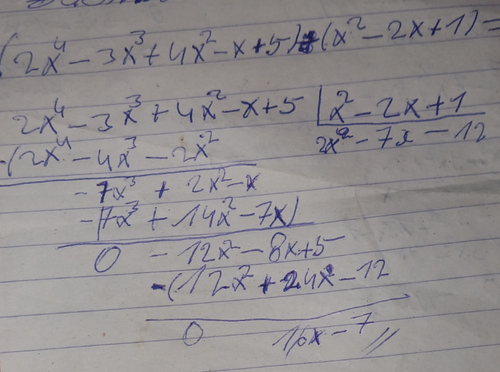 (2x⁴ - 3x³ + 4x² - x + 5) : (x² - 2x + 1) =
2x⁴ - 3x³ + 4x² - x + 5 | x² - 2x + 1
-(2x⁴ - 4x³ - 2x² 2x² - 7x - 12
-7x³ + 2x² - x
-(7x³ + 14x² - 7x)
0 - 12x² - 8x + 5
-(12x² + 24x - 12
0 16x - 7 //